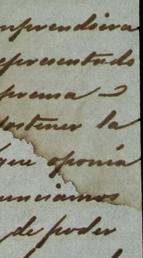 mprendiera
epresentado
prensa
sostener la
que oponía
unciamos
de poder